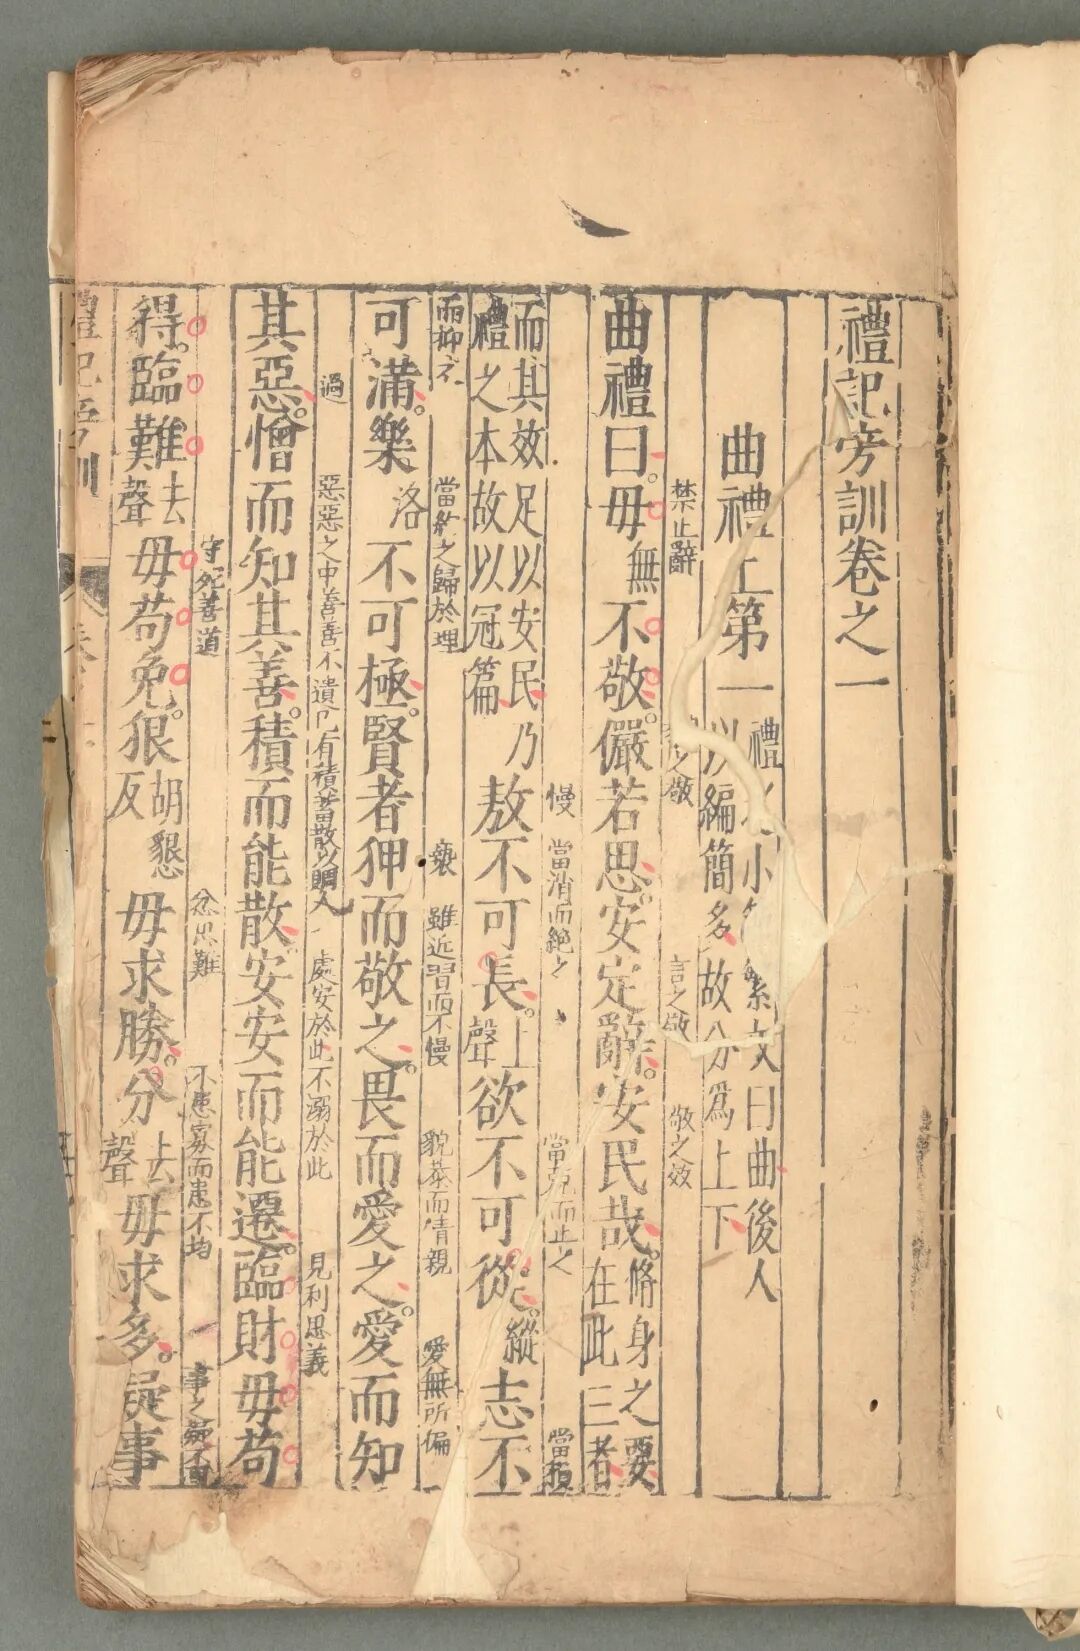 禮記旁訓卷之一
曲禮上第一
禮 小 繁文曰曲後人
以編簡多故分爲上下
禁止辭
之敬
言之敬
敬之效
曲禮曰毋無不敬儼若思安定辭安民哉脩身之要在此三者
慢
當消而絶之
當克而止之
當損
而其效足以安民乃禮之本故以冠篇敖不可長上聲欲不可從縱志不
而抑之
當約之歸於理
褻
雖近習而不慢
貌恭而情親
愛無所偏
可滿樂洛不可極賢者狎而敬之畏而愛之愛而知
過
惡惡之中善善不遺凡有積蓄散以賙人
處安於此不溺於此
見利思義
其惡憎而知其善積而能散安安而能遷臨財毋苟
守死善道
忿思難
不患寡而患不均
事之
得臨難去聲毋苟免狠胡懇反毋求勝分去聲毋求多疑事